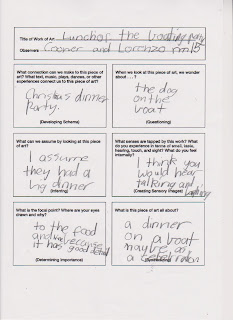 Title of Work of Art: Lunch of the boating party
Observers: Cooper and Lorenzo rm 15
What connection can we make to this piece of
art? What text, music, plays, dances, or other
experiences connect us to this piece of art?
Christmas dinner
Party.
(Developing Schema)
When we look at this piece of art, we wonder
about . . . ?
the dog
on the
boat
(Questioning)
What can we assume by looking at this piece
of art?
I assume
they had a
big dinner
(Inferring)
What senses are tapped by this work? What
do you experience in terms of smell, taste,
hearing, touch, and sight? What do you feel
internally?
I think you
would hear
talking and
laughing
(Creating Sensory Images)
What is the focal point? Where are your eyes
drawn and why?
to the food
and because
it has good detail
(Determining Importance)
What is this piece of art all about?
a dinner
on a boat
maybe as
a celebration